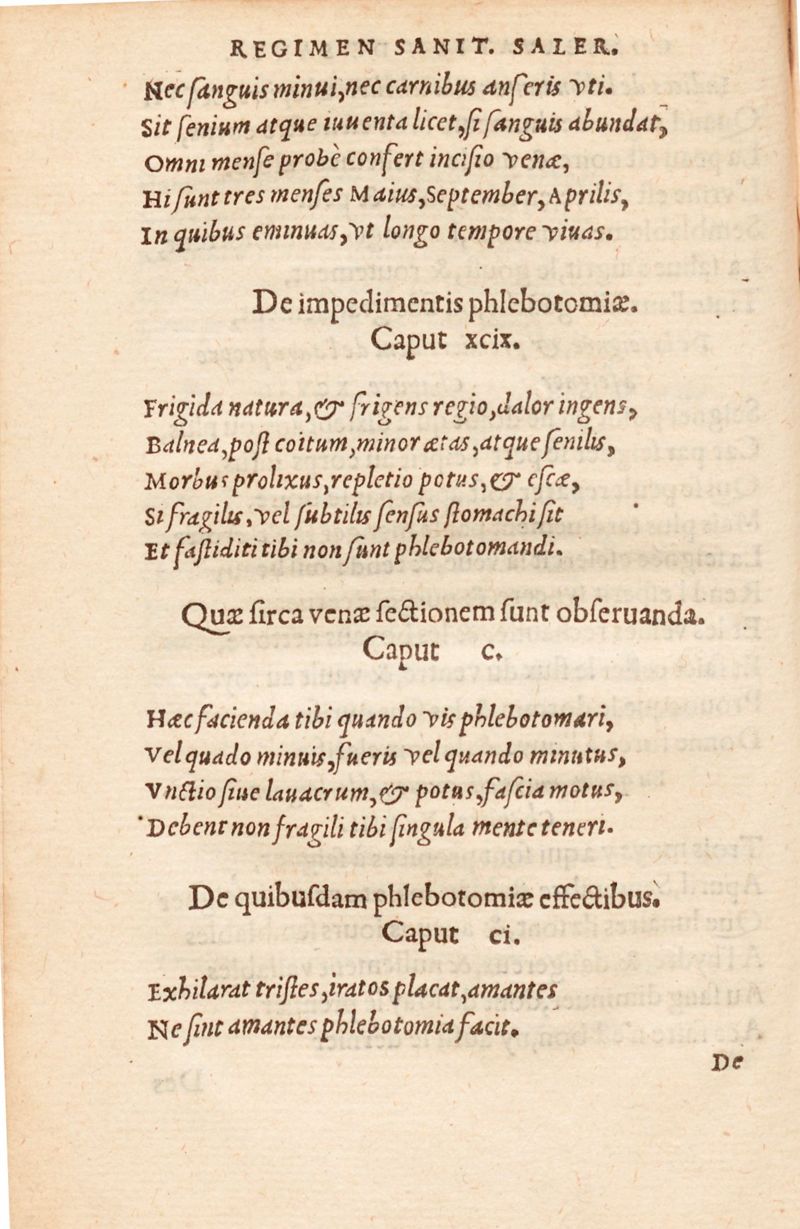 REGIMEN SANIT. SALER.
Nec ſanguis minui, nec carnibus anſeris vti.
Sit ſenium atque iuuenta licet, ſi ſanguis abundat,
Omni menſe probè confert inciſio venæ,
Hi ſunt tres menſes Maius, September, Aprilis,
In quibus eminuas, vt longo tempore viuas.
De impedimentis phlebotomiæ.
Caput xcix.
Frigida natura, & frigens regio, dalor ingens,
Balnea, poſt coitum, minor ætas, atque ſenilis,
Morbus prolixus, repletio potus, & eſcæ,
Si fragilis, vel ſubtilis ſenſus ſtomachi ſit
Et faſtiditi tibi non ſunt phlebotomandi.
Quæ ſirca venæ ſectionem ſunt obſeruanda.
Caput c.
Hæc facienda tibi quando vis phlebotomari,
Vel quado minuis, fueris vel quando minutus,
Vnctio ſiue lauacrum, & potus, faſcia motus,
Debent non fragili tibi ſingula mente teneri.
De quibuſdam phlebotomiæ effectibus.
Caput ci.
Exhilarat triſtes, iratos placat, amantes
Ne ſint amantes phlebotomia facit.
De